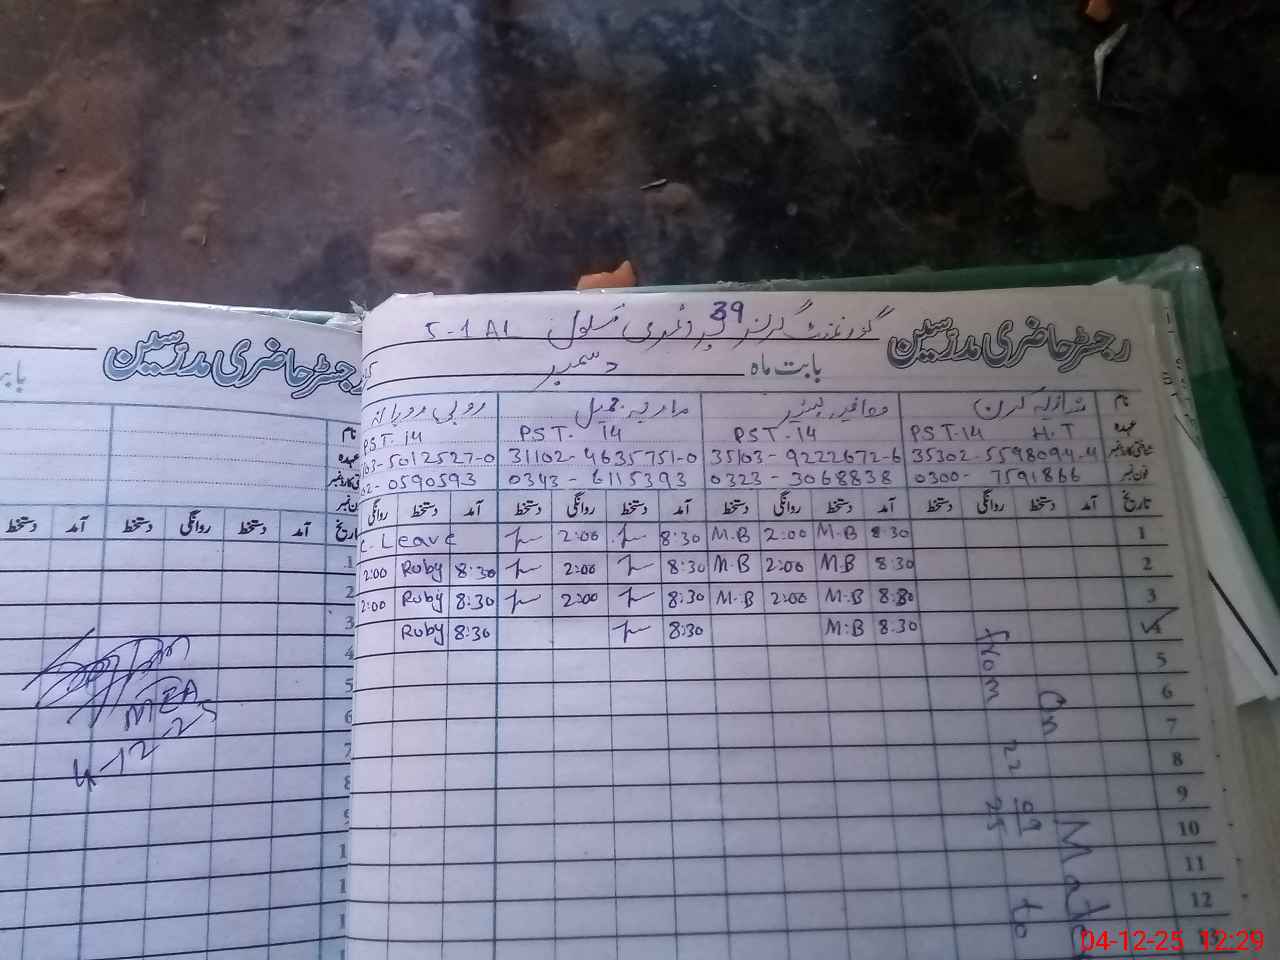 رجسٹر حاضری مدرسین
39
گورنمنٹ گرلز پرائمری سکول 5-1 AL
بابت ماہ دسمبر
نام
شازیہ کرن
ماریہ جمیل
روبی روبانہ
عہدہ
PST.14 H.T
PST.14
PST. 14
PST.14
شناختی کارڈ نمبر
35302-5598094-4
35103-9222672-6
31102-4635751-0
103-5012527-0
فون نمبر
0300-7591866
0323-3068838
0343-6115393
02-0590593
تاریخ آمد دستخط روانگی دستخط آمد دستخط روانگی دستخط آمد دستخط روانگی دستخط آمد دستخط روانگی
1 8:30 M.B 2:00 M.B 8:30 2:00 C. Leave
2 8:30 M.B 2:00 M.B 8:30 2:00 8:30 Ruby 2:00
3 8:30 M.B 2:00 M.B 8:30 2:00 8:30 Ruby 2:00
4 8:30 M.B 8:30 8:30 Ruby
5
6
7
8
9
10
11
12
13
On Mate
from 22 09 25 to
رجسٹر حاضری مدرسین
باب
نام
عہدہ
تاریخ آمد دستخط روانگی دستخط آمد دستخط
1
2
3
4
5
6
7
8
9
1
1
1
1
MEA
4-12-25
04-12-25 12:29